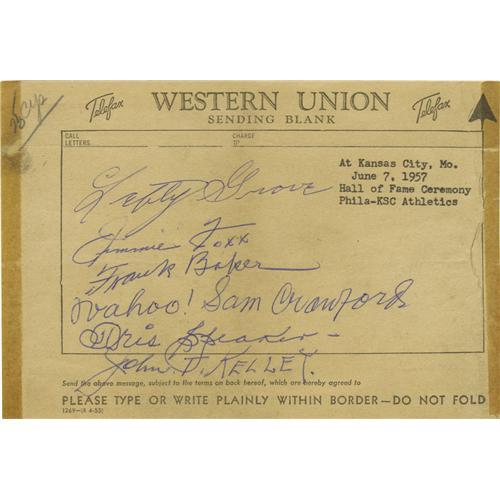 Telefax WESTERN UNION Telefax
SENDING BLANK
CALL LETTERS CHARGE TO
At Kansas City, Mo.
June 7, 1957
Hall of Fame Ceremony
Phila-KSC Athletics
Lefty Grove
Jimmie Foxx
Frank Baker
Wahoo! Sam Crawford
Tris Speaker -
John D. KELLEY.
Send the above message, subject to the terms on back hereof, which are hereby agreed to
PLEASE TYPE OR WRITE PLAINLY WITHIN BORDER—DO NOT FOLD
1269—(R 4-55)